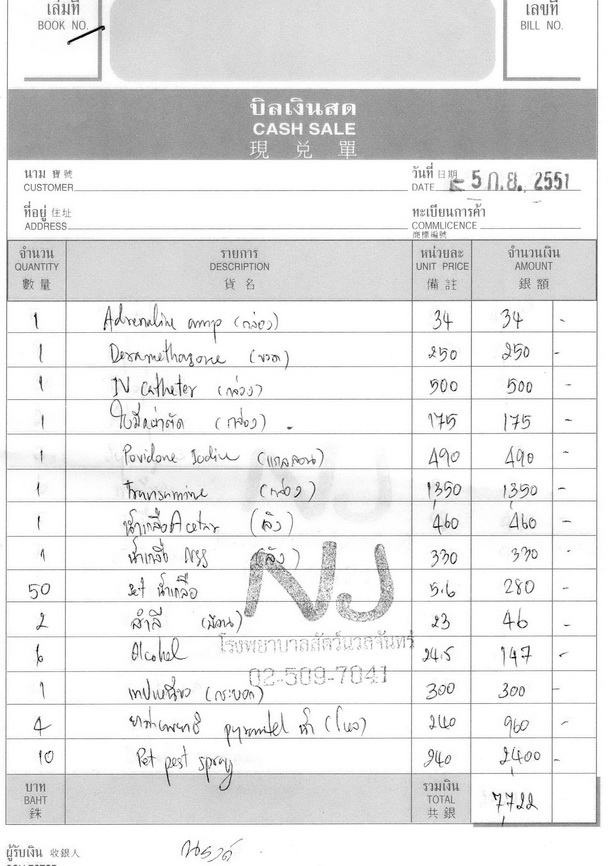 เล่มที่
BOOK NO.
เลขที่
BILL NO.
บิลเงินสด
CASH SALE
現 兌 單
นาม 寶號
CUSTOMER
วันที่ 日期
DATE 5 ก.ย. 2551
ที่อยู่ 住址
ADDRESS
ทะเบียนการค้า
COMMLICENCE
商標編號
จำนวน รายการ หน่วยละ จำนวนเงิน
QUANTITY DESCRIPTION UNIT PRICE AMOUNT
數量 貨名 備註 銀額
1 Adrenaline amp (กล่อง) 34 34 -
1 Dexamethasone (ขวด) 250 250 -
1 IV catheter (กล่อง) 500 500 -
1 ใบมีดผ่าตัด (กล่อง) 175 175 -
1 Povidone Iodine (แกลลอน) 490 490 -
1 Transamine (กล่อง) 1350 1350 -
1 น้ำเกลือ Acetar (ลัง) 460 460 -
1 น้ำเกลือ NSS (ลัง) 330 330 -
50 set น้ำเกลือ 5.6 280 -
2 สำลี (ม้วน) 23 46 -
6 Alcohol 24.5 147 -
1 เทปเหนียว (กระบอก) 300 300 -
4 ยาถ่ายพยาธิ pyrantel น้ำ (โหล) 240 960 -
10 Pet pest spray 240 2400 -
NJ
โรงพยาบาลสัตว์นวลจันทร์
02-509-7041
บาท
BAHT
銖
รวมเงิน
TOTAL
共銀
7722
ผู้รับเงิน 收銀人